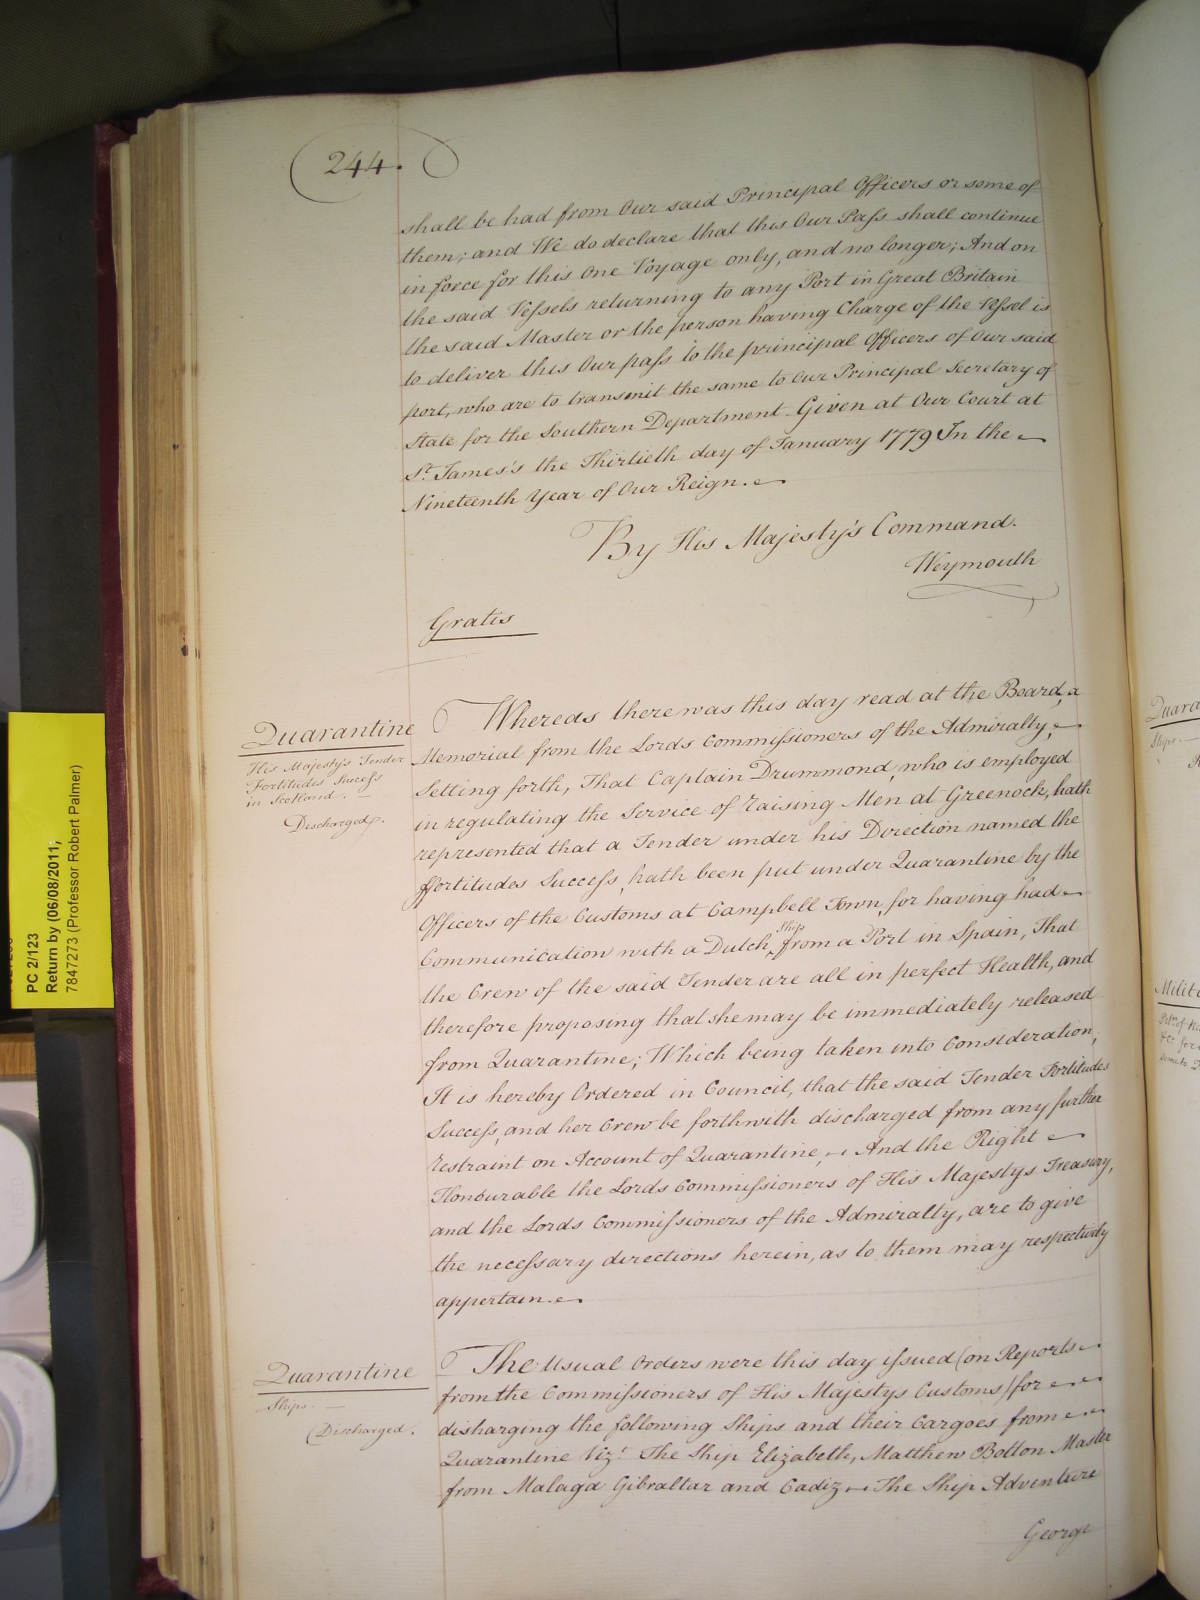 244.
shall be had from Our said Principal Officers or some of
them; and We do declare that this Our Pass shall continue
in force for this One Voyage only, and no longer; And on
the said Vessels returning to any Port in Great Britain
the said Master or the person having Charge of the Vessel is
to deliver this Our pass to the principal Officers of Our said
port, who are to transmit the same to Our Principal Secretary of
State for the Southern Department Given at Our Court at
St. James's the Thirtieth day of January 1779 In the
Nineteenth Year of Our Reign.
By His Majesty's Command.
Weymouth
Gratis
Quarantine
His Majesty's Tender
Fortitudes Success
in Scotland.
Discharged.
Whereas there was this day read at the Board, a
Memorial from the Lords Commissioners of the Admiralty,
Setting forth, That Captain Drummond, who is employed
in regulating the Service of raising Men at Greenock, hath
represented that a Tender under his Direction named the
ffortitudes Success, hath been put under Quarantine by the
Officers of the Customs at Campbell Town, for having had
Communication with a Dutch Ship from a Port in Spain, That
the Crew of the said Tender are all in perfect Health, and
therefore proposing that she may be immediately released
from Quarantine; Which being taken into Consideration,
It is hereby Ordered in Council, that the said Tender Fortitudes
Success, and her Crew be forthwith discharged from any further
restraint on Account of Quarantine, And the Right
Honourable the Lords Commissioners of His Majestys Treasury,
and the Lords Commissioners of the Admiralty, are to give
the necessary directions herein, as to them may respectively
appertain.
Quarantine
Ships.
Discharged.
The Usual Orders were this day issued (on Reports
from the Commissioners of His Majestys Customs) for
disharging the following Ships and their Cargoes from
Quarantine Vizt. The Ship Elizabeth, Matthew Bolton Master
from Malaga Gibraltar and Cadiz The Ship Adventure
George
PC 2/123
Return by (06/08/2011;
7847273 (Professor Robert Palmer)
Quara
Ships.
Milit